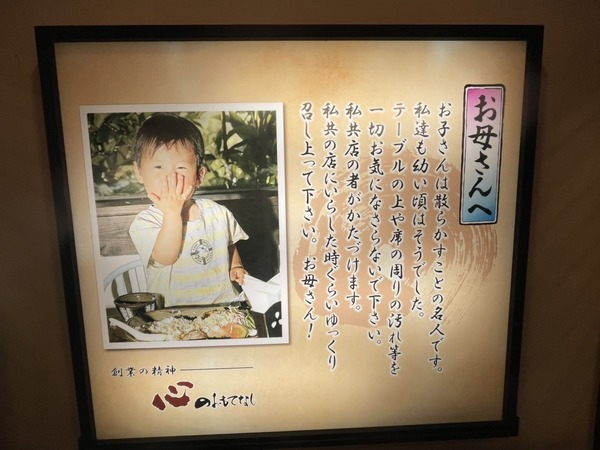 お母さんへ
お子さんは散らかすことの名人です。
私達も幼い頃はそうでした。
テーブルの上や席の周りの汚れ等を
一切お気になさらないで下さい。
私共店の者がかたづけます。
私共の店にいらした時ぐらいゆっくり
召し上って下さい。 お母さん！
創業の精神
心のおもてなし